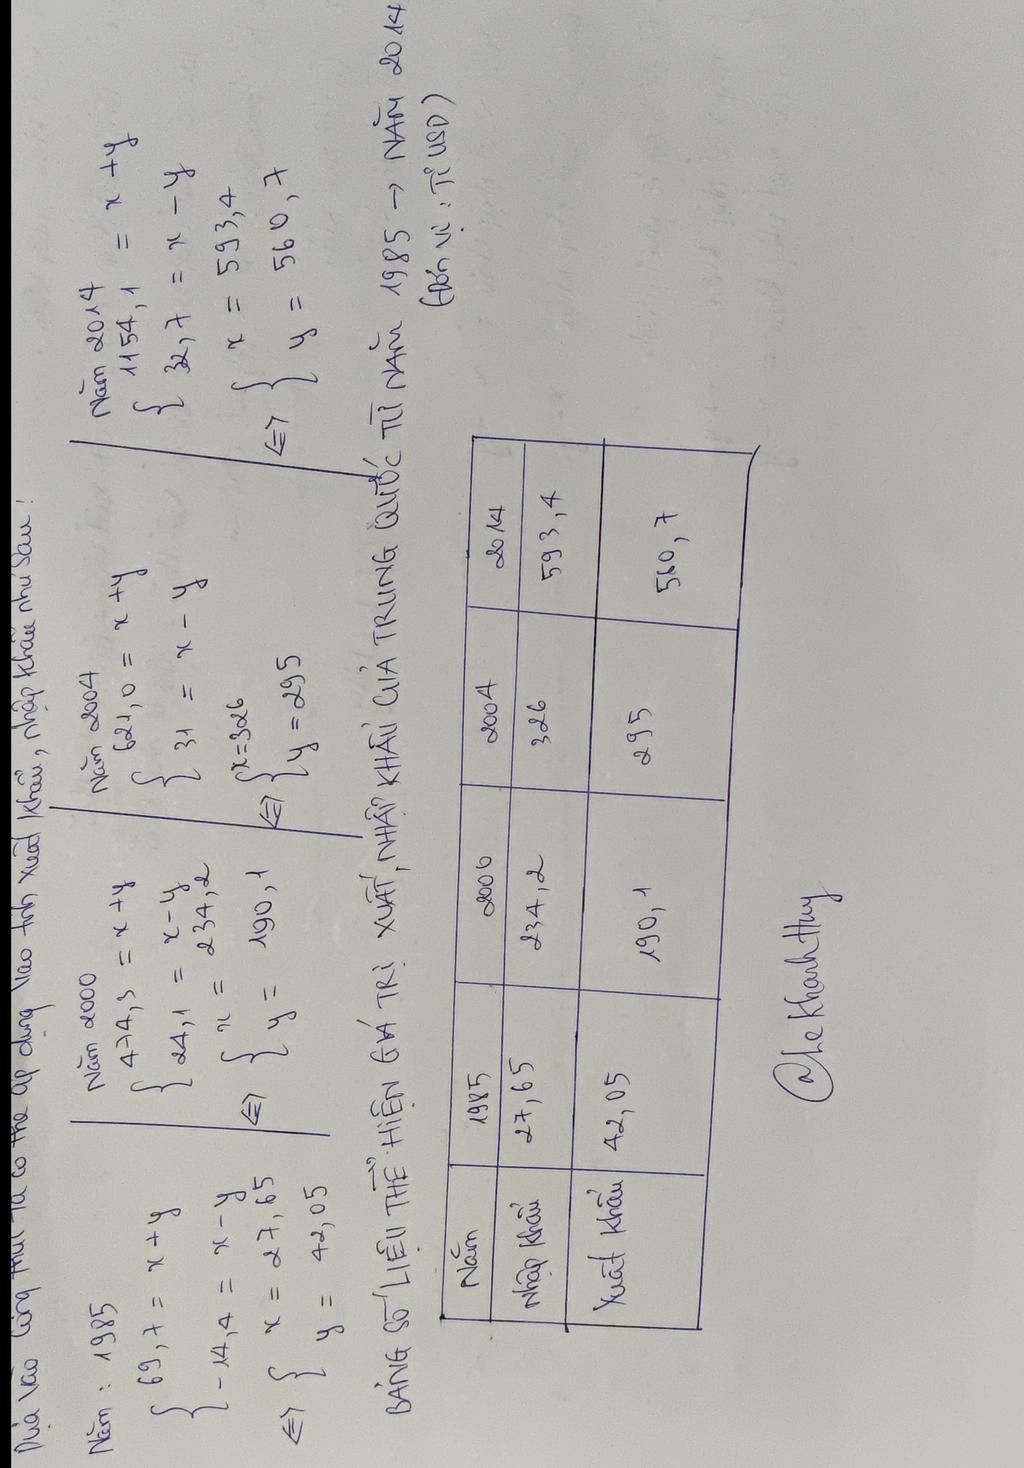 Dựa vào công thức ta có thể áp dụng vào tính xuất khẩu, nhập khẩu như sau:
Năm: 1985
{ 69,7 = x+y
{ -14,4 = x-y
<=> { x = 27,65
{ y = 42,05
Năm 2000
{ 474,3 = x+y
{ 24,1 = x-y
<=> { x = 234,2
{ y = 190,1
Năm 2004
{ 621,0 = x+y
{ 31 = x-y
<=> { x=326
{ y=295
Năm 2014
{ 1154,1 = x+y
{ 32,7 = x-y
<=> { x = 593,4
{ y = 560,7
BẢNG SỐ LIỆU THỂ HIỆN GIÁ TRỊ XUẤT, NHẬP KHẨU CỦA TRUNG QUỐC TỪ NĂM 1985 → NĂM 2014
(Đơn vị: TỈ USD)
Năm 1985 2000 2004 2014
Nhập khẩu 27,65 234,2 326 593,4
Xuất khẩu 42,05 190,1 295 560,7
@LeKhanhHuy